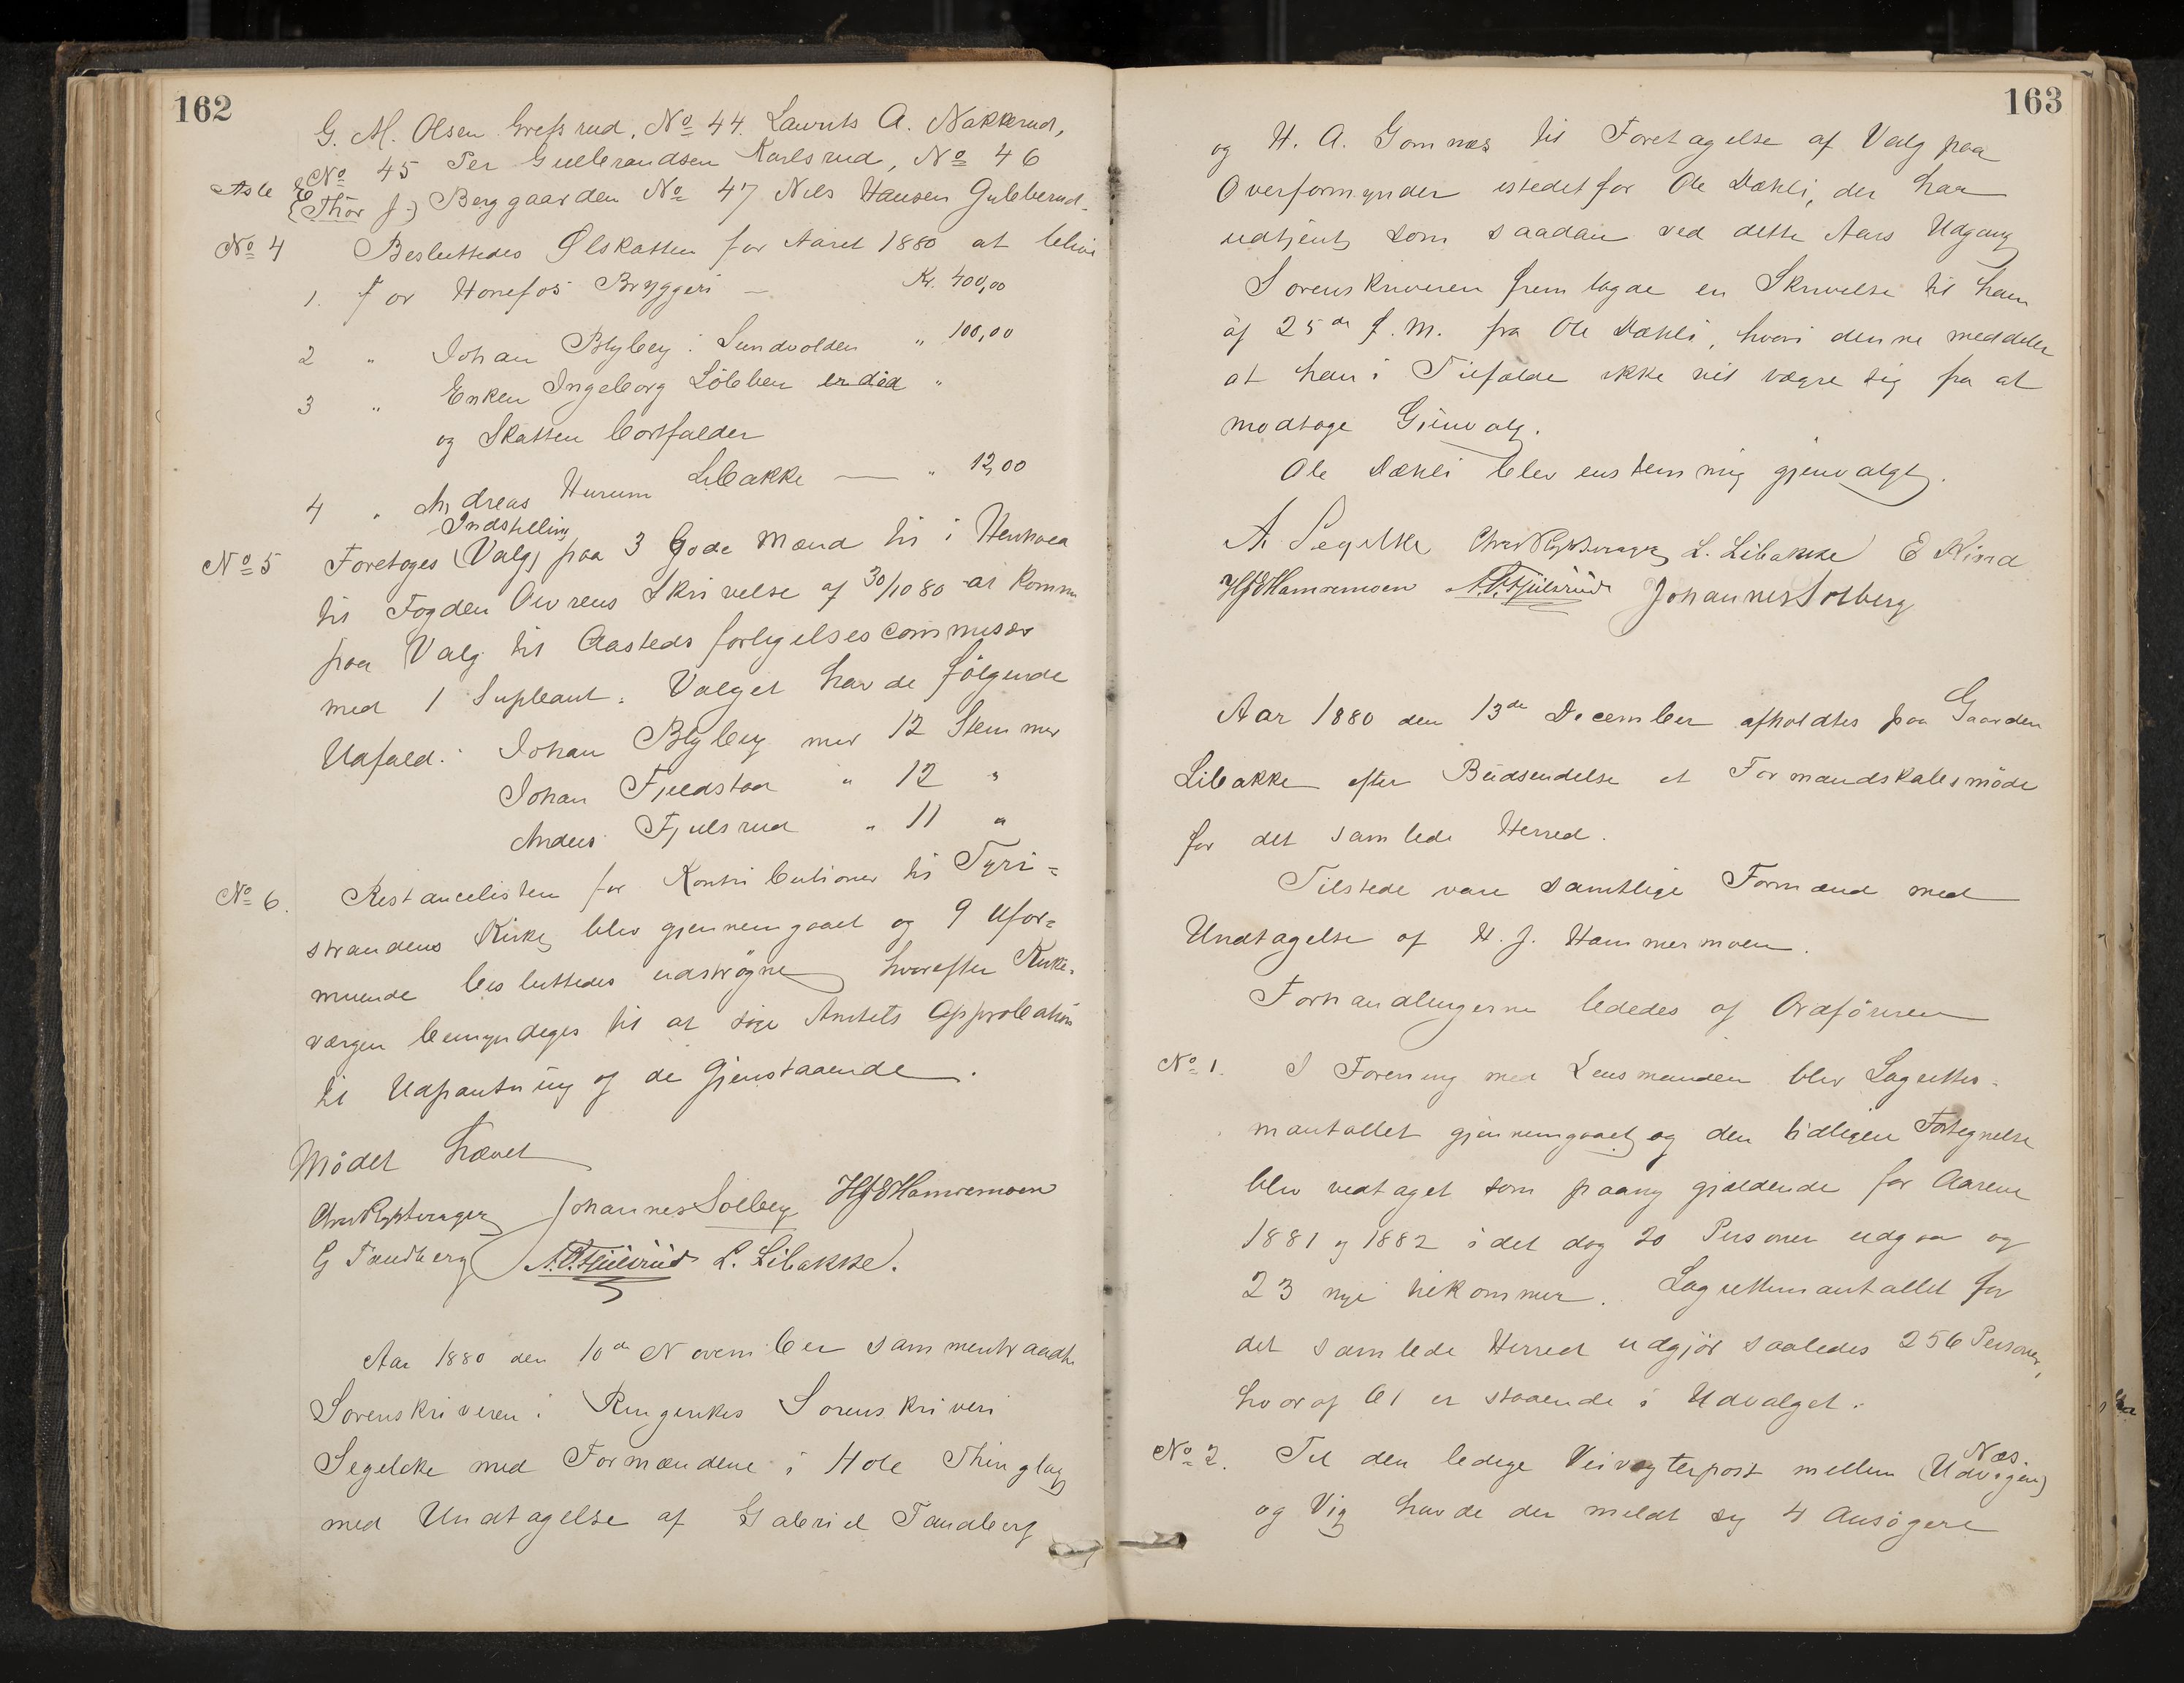 162
G. M. Olsen Grefsrud, No 44. Laurits A. Nakkerud,
No 45 Per Gulbrandsen Karlsrud, No 46
Asle E. (Thor J.) Berggaarden No 47 Nils Hansen Gulberud.
No 4 Besluttedes Ølskatten for Aaret 1880 at blive
1. for Hønefos Bryggeri — Kr. 400,00
2 " Johan Blyberg i Sundvolden " 100,00
3 " Enken Ingeborg Løbben er död "
og Skatten bortfalder
4 " Andreas Hurum Libakke — " 12,00
Indstilling
No 5 Foretoges (Valg) paa 3 Gode Mænd til i Henhold
til Fogden Skrivelse af 30/10 80 at komme
paa Valg til Aasteds forligelsescommisær
med 1 Supleant. Valget havde følgende
Udfald: Johan Blyberg med 12 Stemmer
Johan Fjeldstad " 12 "
Anders Fjulsrud " 11 "
No 6. Restancelisten for Kontributioner til Tyri=
strandens Kirke blev gjennemgaaet og 9 Ufor=
muende besluttedes udstrøgne hvorefter Kirke=
værgen bemyndiges til at søge Amtets Approbation
til Udpantning af de Gjenstaaende.
Mödet hævet
Johannes Solberg HJ Hammermoen
G Tandberg A. P. Fjulsrud L. Libakke.
Aar 1880 den 10de November sammentraadte
Sorenskriveren i Ringerikes Sorenskriveri
Segelcke med Formændene i Hole Thinglag
med Undtagelse af Gabriel Tandberg
163
og H. A. Gomnæs til Foretagelse af Valg paa
Overformynder istedetfor Ole Dæhli, der har
udtjent som saadan ved dette Aars Udgang
Sorenskriveren fremlagde en Skrivelse til ham
af 25de f. M. fra Ole Dæhli, hvori denne meddeler
at han i Tilfælde ikke vil vægre sig fra at
modtage Gjenvalg.
Ole Dæhli blev enstemmig gjenvalgt.
A. Segelcke L. Libakke E Kind
HJ Hammermoen A. P. Fjulsrud Johannes Solberg
Aar 1880 den 13de December afholdtes paa Gaarden
Libakke efter Budsendelse et Formandskabsmöde
for det samlede Herred.
Tilstede vare samtlige Formænd med
Undtagelse af H. J. Hammermoen.
Forhandlingerne lededes af Ordföreren
No 1. I Forening med Lensmanden blev Lagrettes=
mantallet gjennemgaaet og den tidligere Fortegnelse
blev vedtaget som paany gjældende for Aarene
1881 og 1882 idet dog 20 Personer udgaar og
23 nye tilkommer. Lagrettemantallet for
det samlede Herred udgjør saaledes 256 Personer,
hvoraf 61 er staaende i Udvalget.
Næs.
No 2. Til den ledige Veivogterpost mellem (Udvigen)
og Vig havde der meldt sig 4 Ansøgere